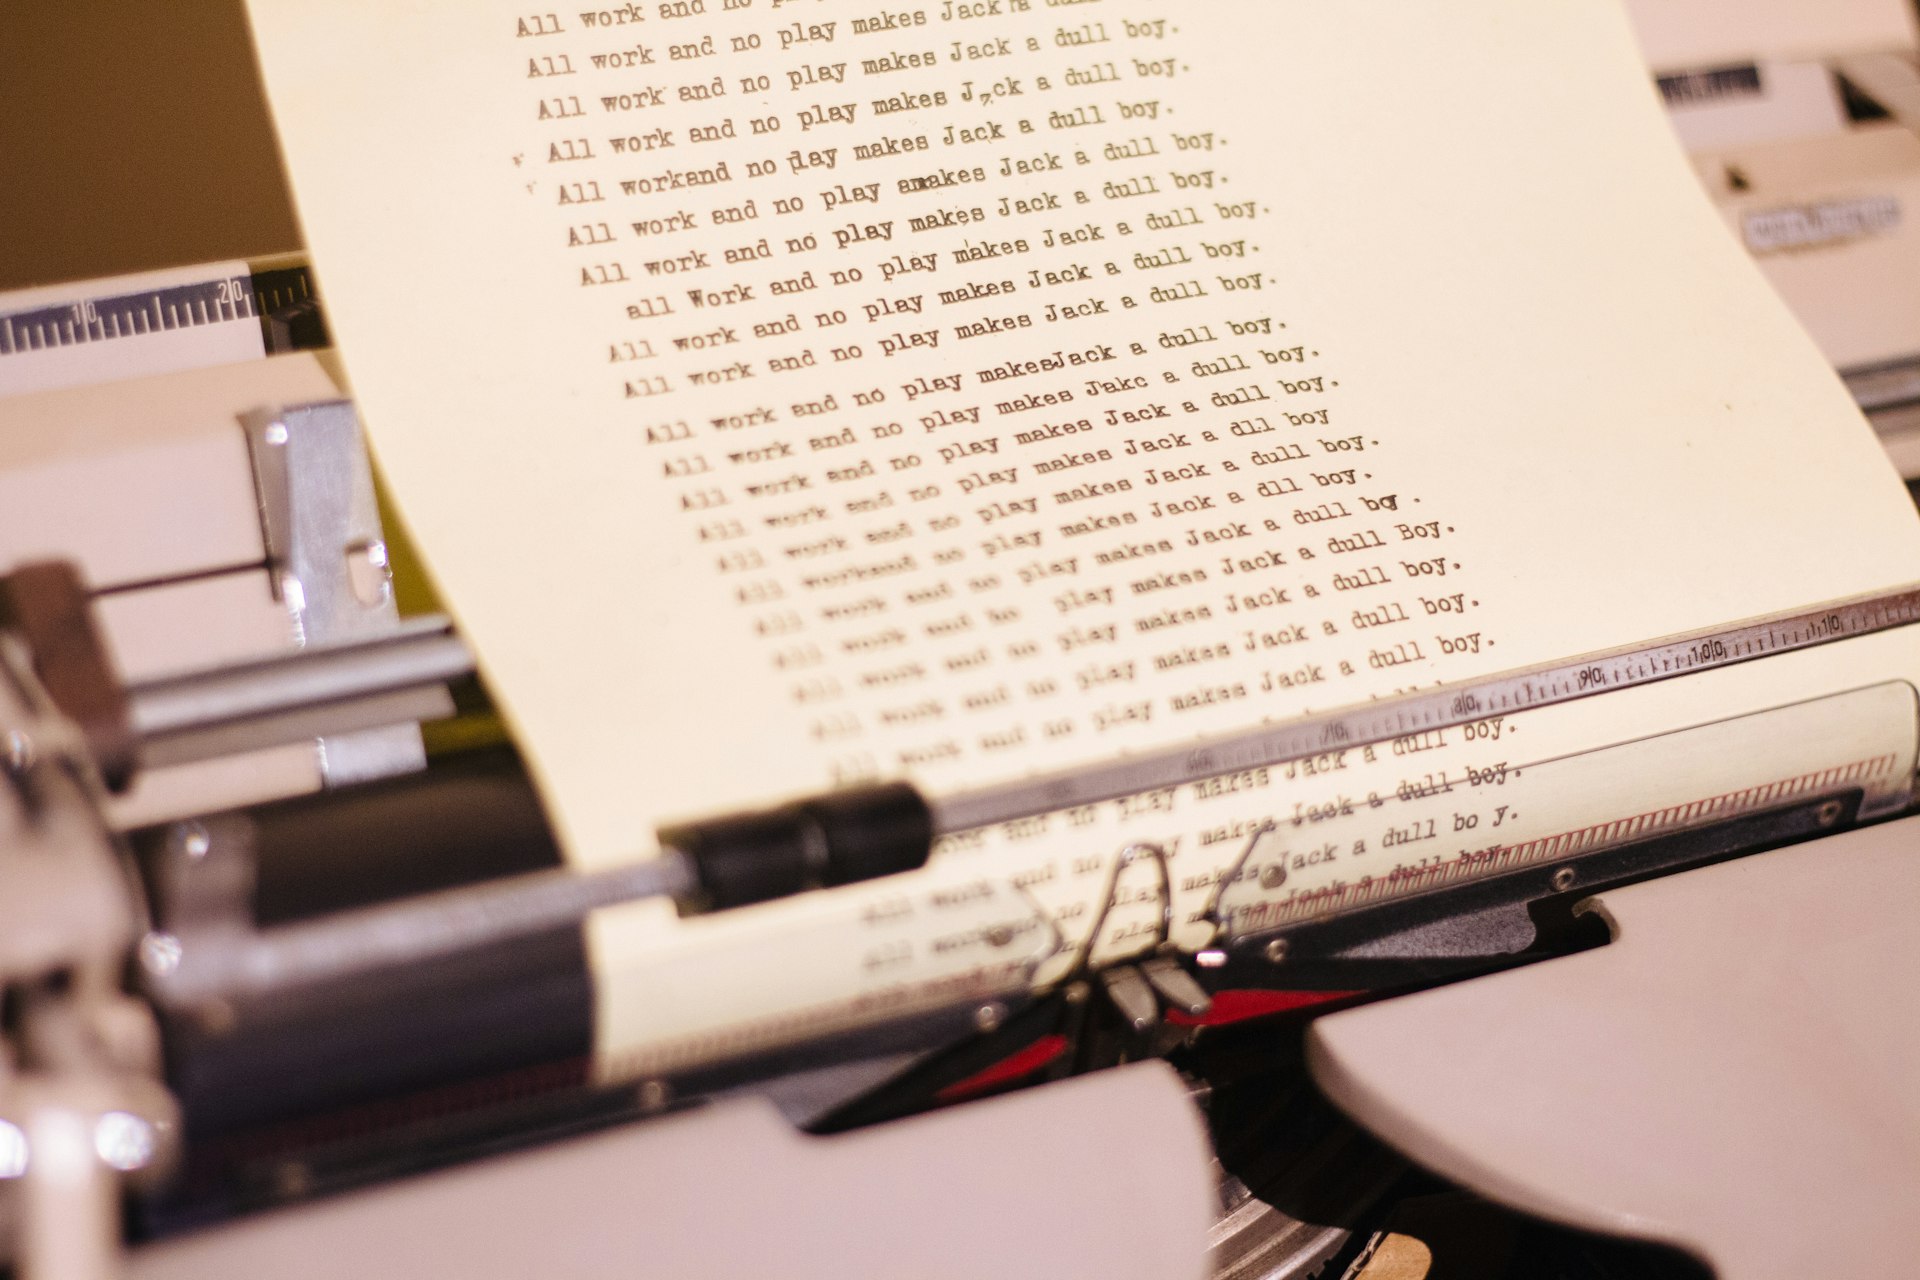 All work and no
All work and no play makes Jack a
All work and no play makes Jack a dull boy.
All work and no play makes J,ck a dull boy.
All workand no day makes Jack a dull boy.
All work and no play amakes Jack a dull boy.
All work and no play makes Jack a dull boy.
all Work and no play makes Jack a dull boy.
All work and no play makes Jack a dull boy.
All work and no play makes Jack a dull boy.
All work and no play makesJack a dull boy.
All work and no play makes Jakc a dull boy.
All work and no play makes Jack a dull boy.
All work and no play makes Jack a dll boy
All work and no play makes Jack a dull boy.
All workand no play makes Jack a dll boy.
All work and no play makes Jack a dull boy.
All work and no play makes Jack a dull Boy.
All work and no play makes Jack a dull boy.
All work and no play makes Jack a dull boy.
All work and no play makes Jack a dull boy.
and no play makes Jack a dull boy.
All work and no play makes Jack a dull boy.
All work no play makes Jack a dull bo y.
Jack a dull boy.
10 20
70 80 90 100 110